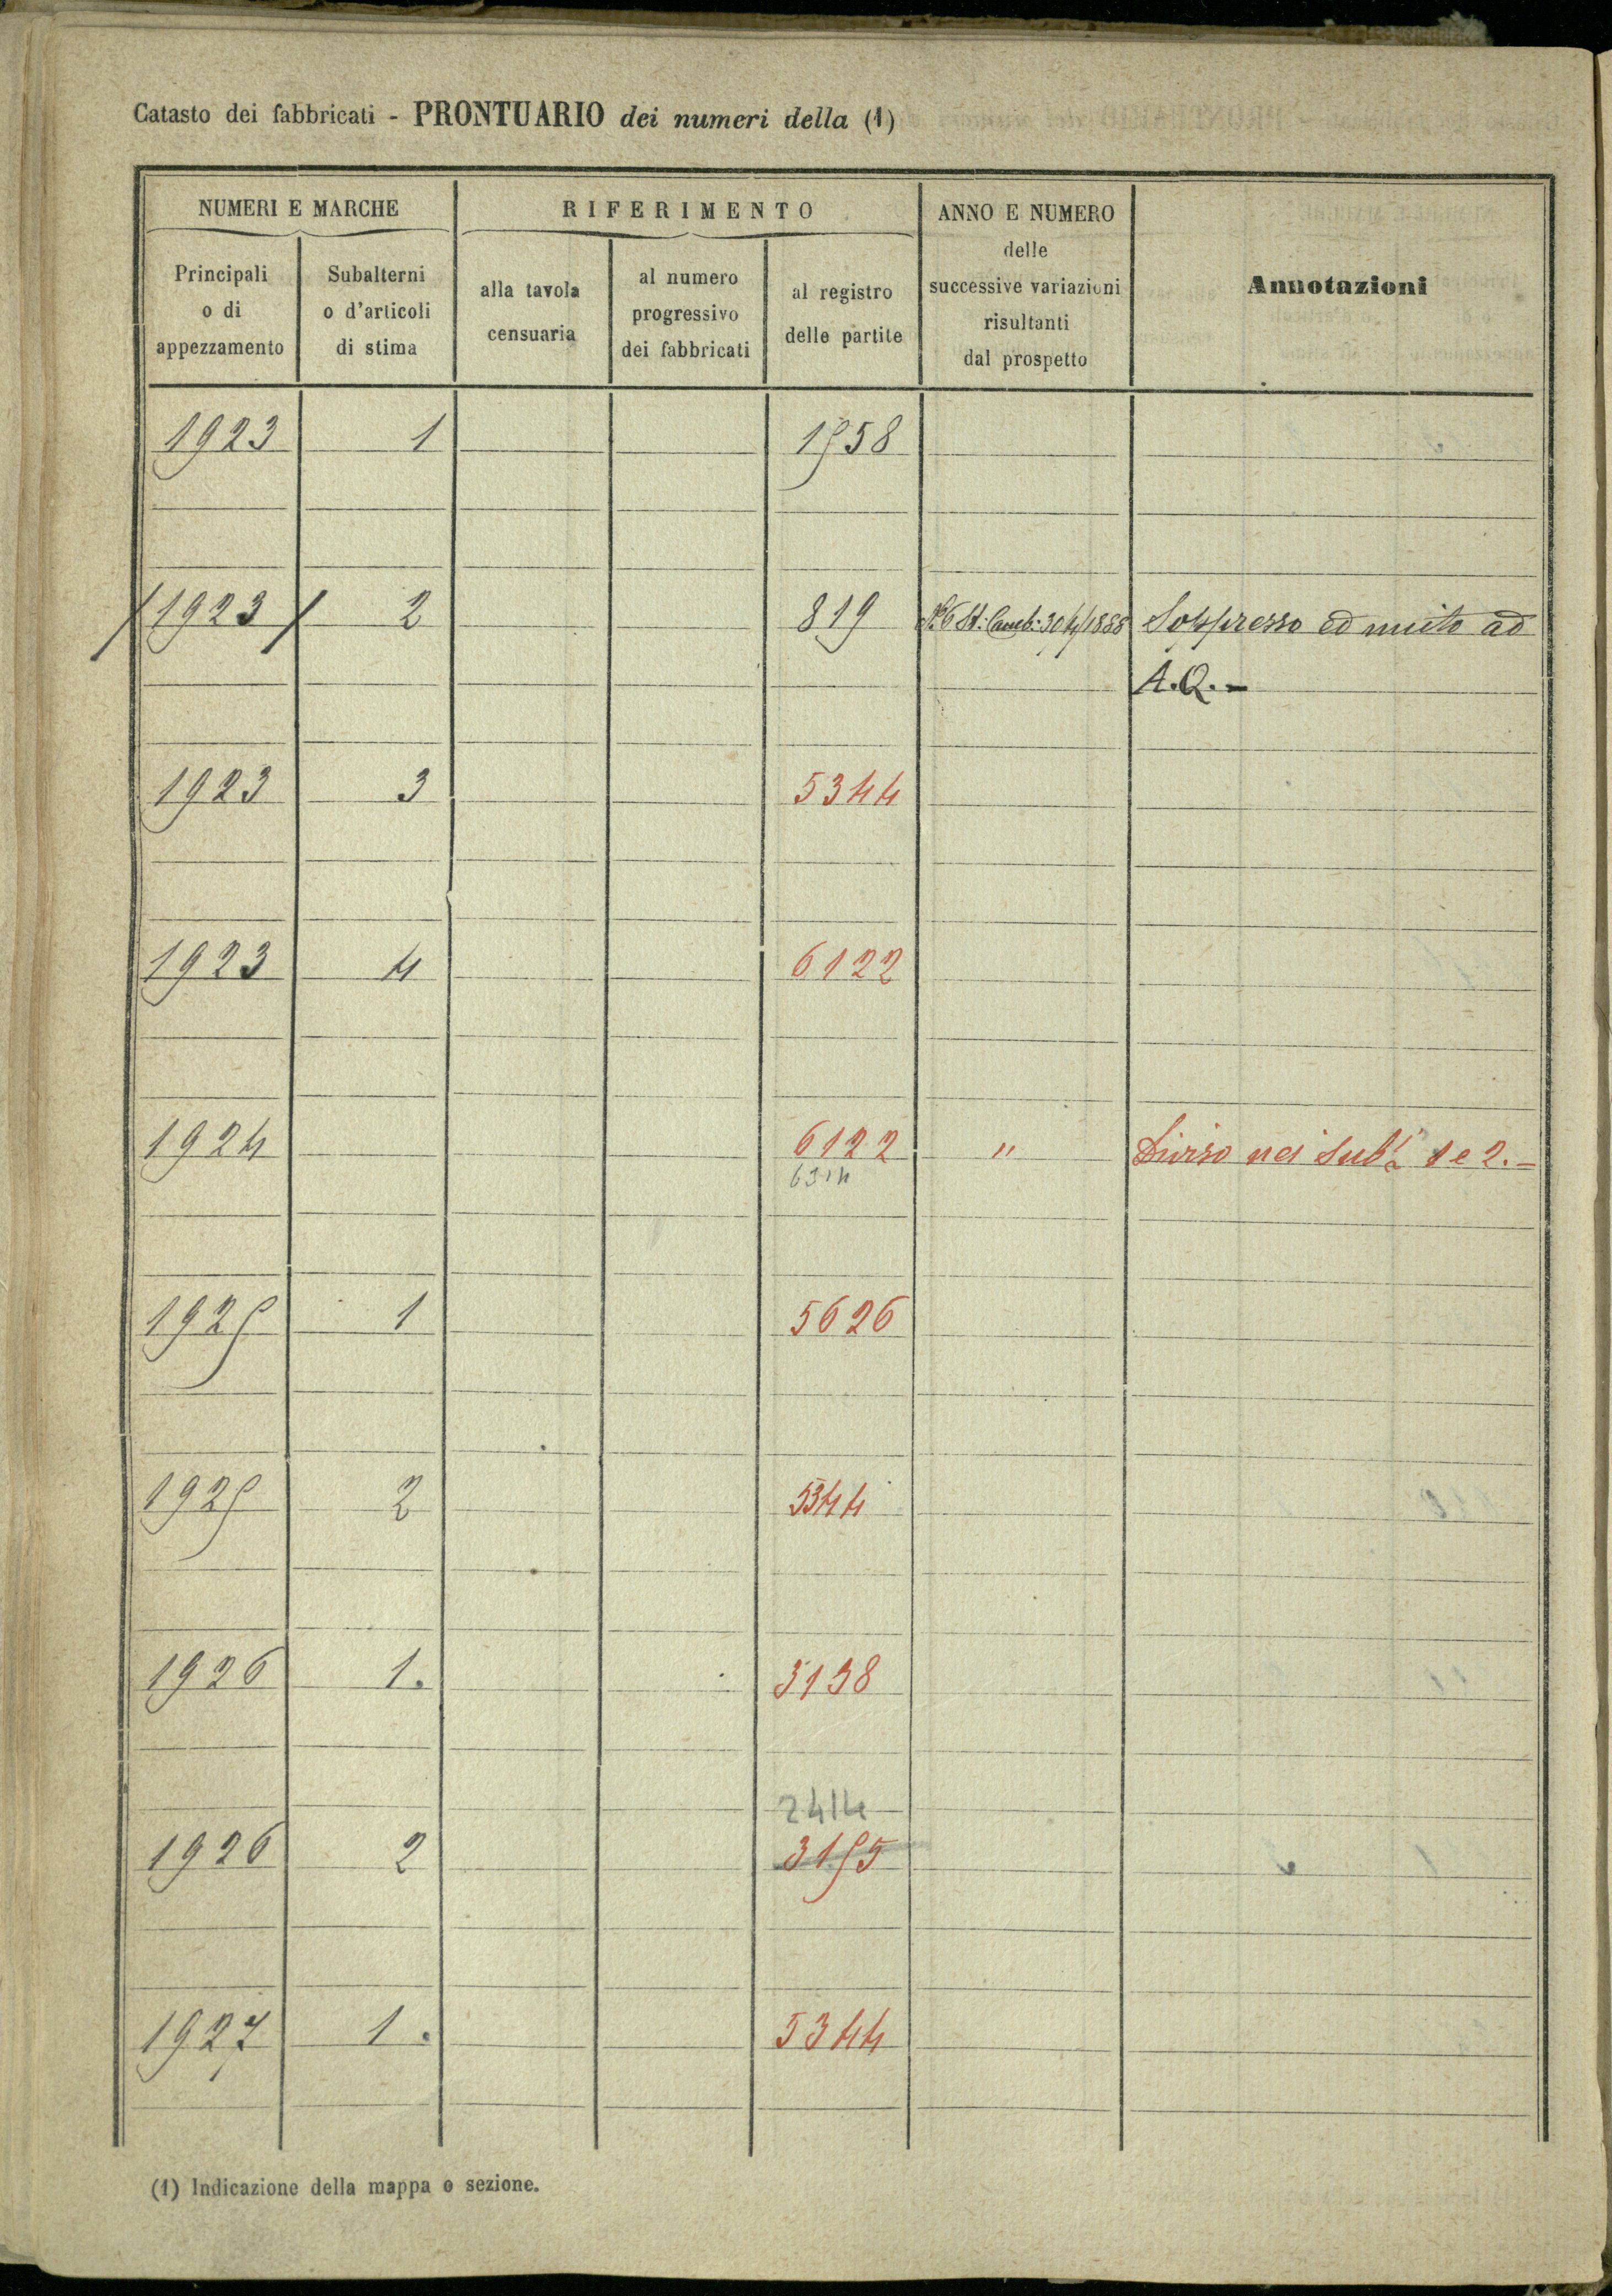 Catasto dei fabbricati - PRONTUARIO dei numeri della (1)
NUMERI E MARCHE
RIFERIMENTO
ANNO E NUMERO
delle
successive variazioni
risultanti
dal prospetto
Annotazioni
Principali
o di
appezzamento
Subalterni
o d'articoli
di stima
alla tavola
censuaria
al numero
progressivo
dei fabbricati
al registro
delle partite
1923 1 1958
/1923/ 2 819 N.º 6 St: Camb: 30/4/1888 Soppresso ed unito ad
A.Q.-
1923 3 5344
1923 4 6122
1924 6122 " Diviso nei sub.i 1 e 2.-
1925 1 5626
1925 2 5344
1926 1. 3138
2414
1926 2 3155
1927 1. 5344
(1) Indicazione della mappa o sezione.